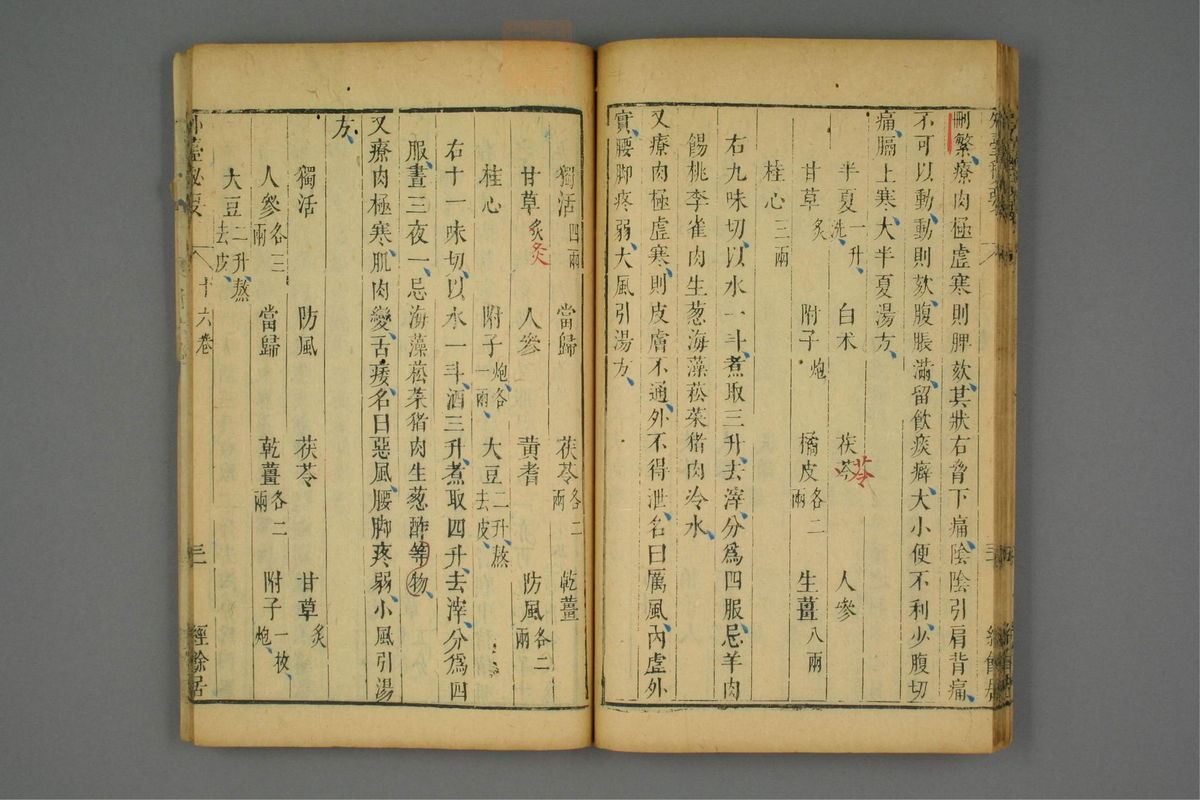 刪繁療肉極虛寒則脾欬其狀右脅下痛陰陰引肩背痛
不可以動動則欬腹脹滿留飲痰癖大小便不利少腹切
痛膈上寒大半夏湯方
半夏一升洗 白朮 茯苓苓 人參
甘草炙 附子炮 橘皮各二兩 生薑八兩
桂心三兩
右九味切以水一斗煮取三升去滓分爲四服忌羊肉
餳桃李雀肉生葱海藻菘菜猪肉冷水
又療肉極虛寒則皮膚不通外不得泄名曰厲風內虛外
實腰脚疼弱大風引湯方
獨活四兩 當歸 茯苓各二兩 乾薑
甘草炙炙 人參 黃耆 防風各二兩
桂心 附子炮各一兩 大豆二升熬去皮
右十一味切以水一斗酒三升煮取四升去滓分爲四
服晝三夜一忌海藻菘菜猪肉生葱酢等物
又療肉極寒肌肉變舌痿名曰惡風腰脚疼弱小風引湯
方
獨活 防風 茯苓 甘草炙
人參各三兩 當歸 乾薑各二兩 附子一枚炮
大豆二升熬去皮
外臺秘要 十六卷 三 經餘居